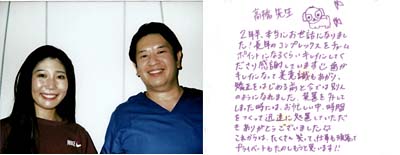 高橋先生
2年半、本当にお世話になりました
！長年のコンプレックスをチャーム
ポイントになるくらいキレイにしてく
ださり感謝しています！歯が
キレイになって美意識もあがり、
矯正をはじめる前と今では別人
のようになれました。装置を外して
しまった時には、お忙しい中、時間
をつくって迅速に処置していただ
きありがとうございました
これからは、たくさん笑って、仕事も
プライベートもたのしもうと思います!!